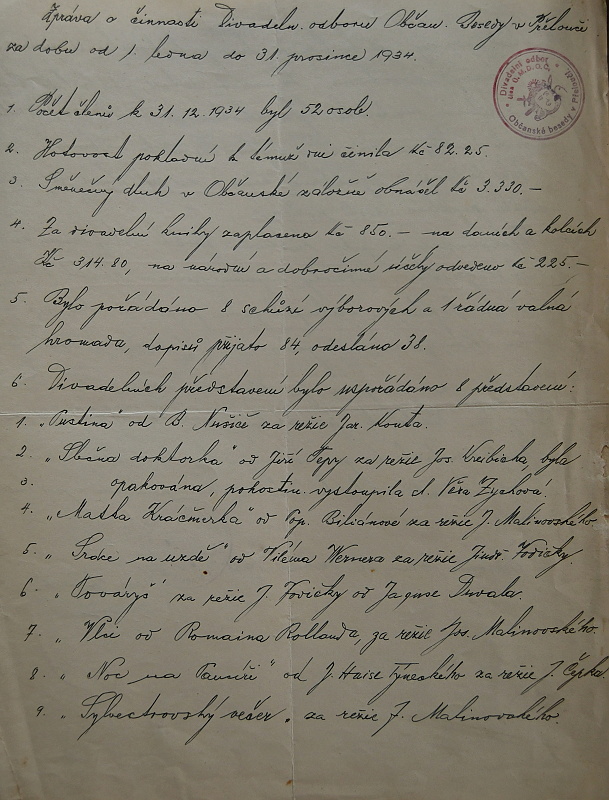 Zpráva o činnosti Divadeln. odboru Občan. Besedy v Přelouči
za dobu od 1. ledna do 31. prosince 1934.
Divadelní odbor
Občanské besedy
1. Počet členů k 31. 12. 1934 byl 52 osob.
2. Hotovost pokladní k témuž dni činila Kč 82.25.
3. Směnečný dluh v Občanské záložně obnášel Kč 3.330.-
4. Za divadelní knihy zaplaceno Kč 850.- na daních a kolcích
Kč 314.80, na národní a dobročinné účely odvedeno Kč 225.-
5. Bylo pořádáno 8 schůzí výborových a 1 řádná valná
hromada, dopisů přijato 84, odesláno 38.
6. Divadelních představení bylo uspořádáno 8 představení:
1. „Pustina" od B. za režie Jar. Kouta.
2. „Slečna doktorka" od Jiří za režie Jos. Kreibicha, byla
3. opakována, vystoupila sl. Věra Zychová.
4. „Matka Kráčmerka" od Pop. Biliánové za režie J. Malinovského.
5. „Srdce na uzdě" od Viléma Wernera za režie Jindř. Vodičky.
6. „Továryš" za režie J. Vodičky od Jaguse Duvala.
7. „Vlci od Romaina Rollanda, za režie Jos. Malinovského.
8. „Noc na" od J. Haise Týneckého za režie J. Čipka.
9. „Sylvestrovský večer„ za režie J. Malinovského.